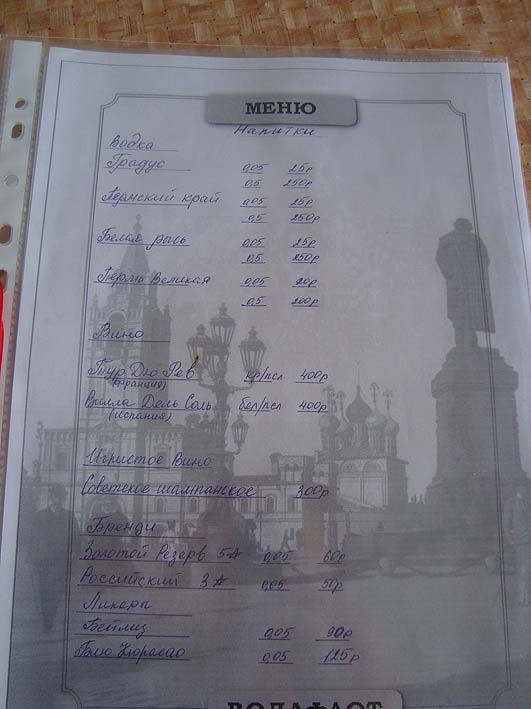 МЕНЮ
Напитки
Водка
Градус 0,05 25р
0,5 250р
Пермский край 0,05 25р
0,5 250р
Белая рысь 0,05 25р
0,5 250р
Пермь Великая 0,05 20р
0,5 200р
Вино
Тур Дю Рев кр/псл 400р
(Франция)
Вилла Дель Соль бел/псл 400р
(Испания)
Игристое вино
Советское шампанское 300р
Бренди
Золотой Резерв 5☆ 0,05 60р
Российский 3☆ 0,05 50р
Ликеры
Бейлиз 0,05 90р
Блю Кюрасао 0,05 125р
ВОДАФЛОТ